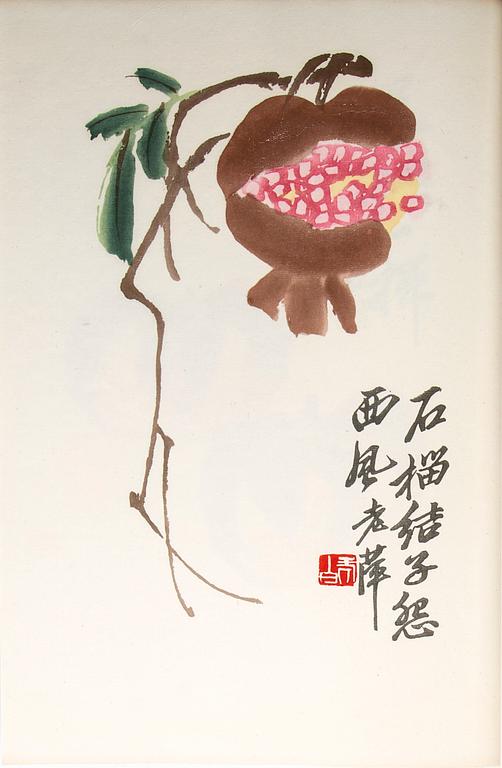 石榴結子怨
西風老萍
白石